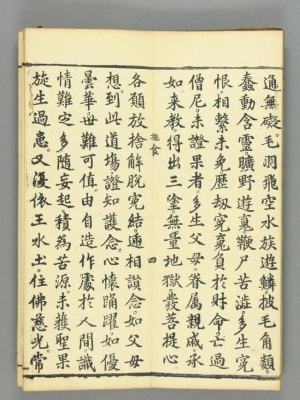 通無礙。毛羽飛空水族遊鱗。披毛角類
蠢動含靈。曠野遊魂。鞭尸苦澁。多生冤
恨。相繫未免。歷劫冤寃負於財命。亡過
僧尼。未證果者。多生父母。眷属親戚。承
如来教。得出三塗。無量地獄。發菩提心
施食
四
各類放捨解脫冤結。逓相讃念。如父母
想。到此道場。證知護念。心懷踊躍。如優
曇華。世難可值。由自造作。處於人間。識
情難定。多随妄起。積為苦源。未獲聖果
旋生過患。又復依王水土。住佛慈光。常